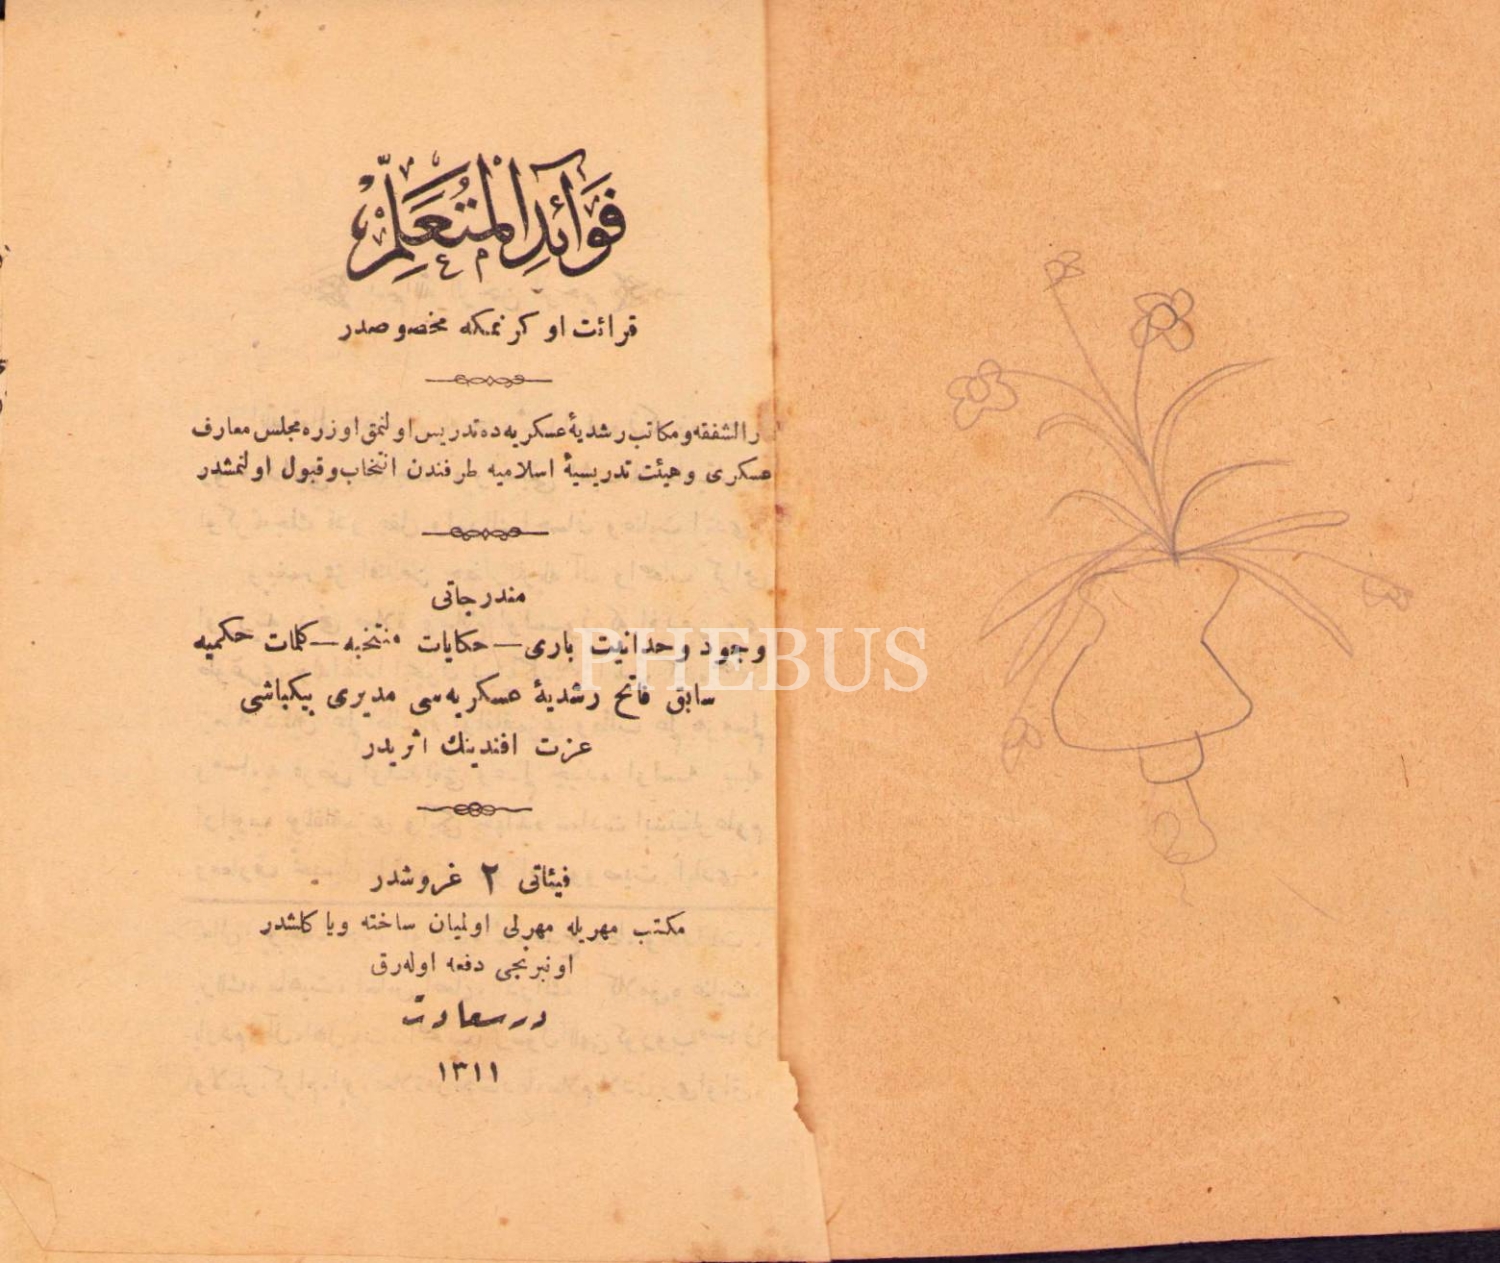 فَوَآئِدِ الْمُتَعَلِّمْ
قرائت اوكرنمكه مخصوصدر
رالشفقه و مكاتب رشديۀ عسكريه ده تدريس اولنمق اوزره مجلس معارف
عسكرى و هيئت تدريسيۀ اسلاميه طرفندن انتخاب و قبول اولنمشدر
مندرجاتى
وجود وحدانيت بارى — حكايات منتخبه — كلمات حكميه
سابق فاتح رشديۀ عسكريه سى مديرى بيكباشى
عزت افندينك اثريدر
فيئاتى ٢ غروشدر
مكتب مهريله مهرلى اولميان ساخته ويا كلشدر
اونبرنجى دفعه اوله رق
درسعادت
١٣١١
PHEBUS